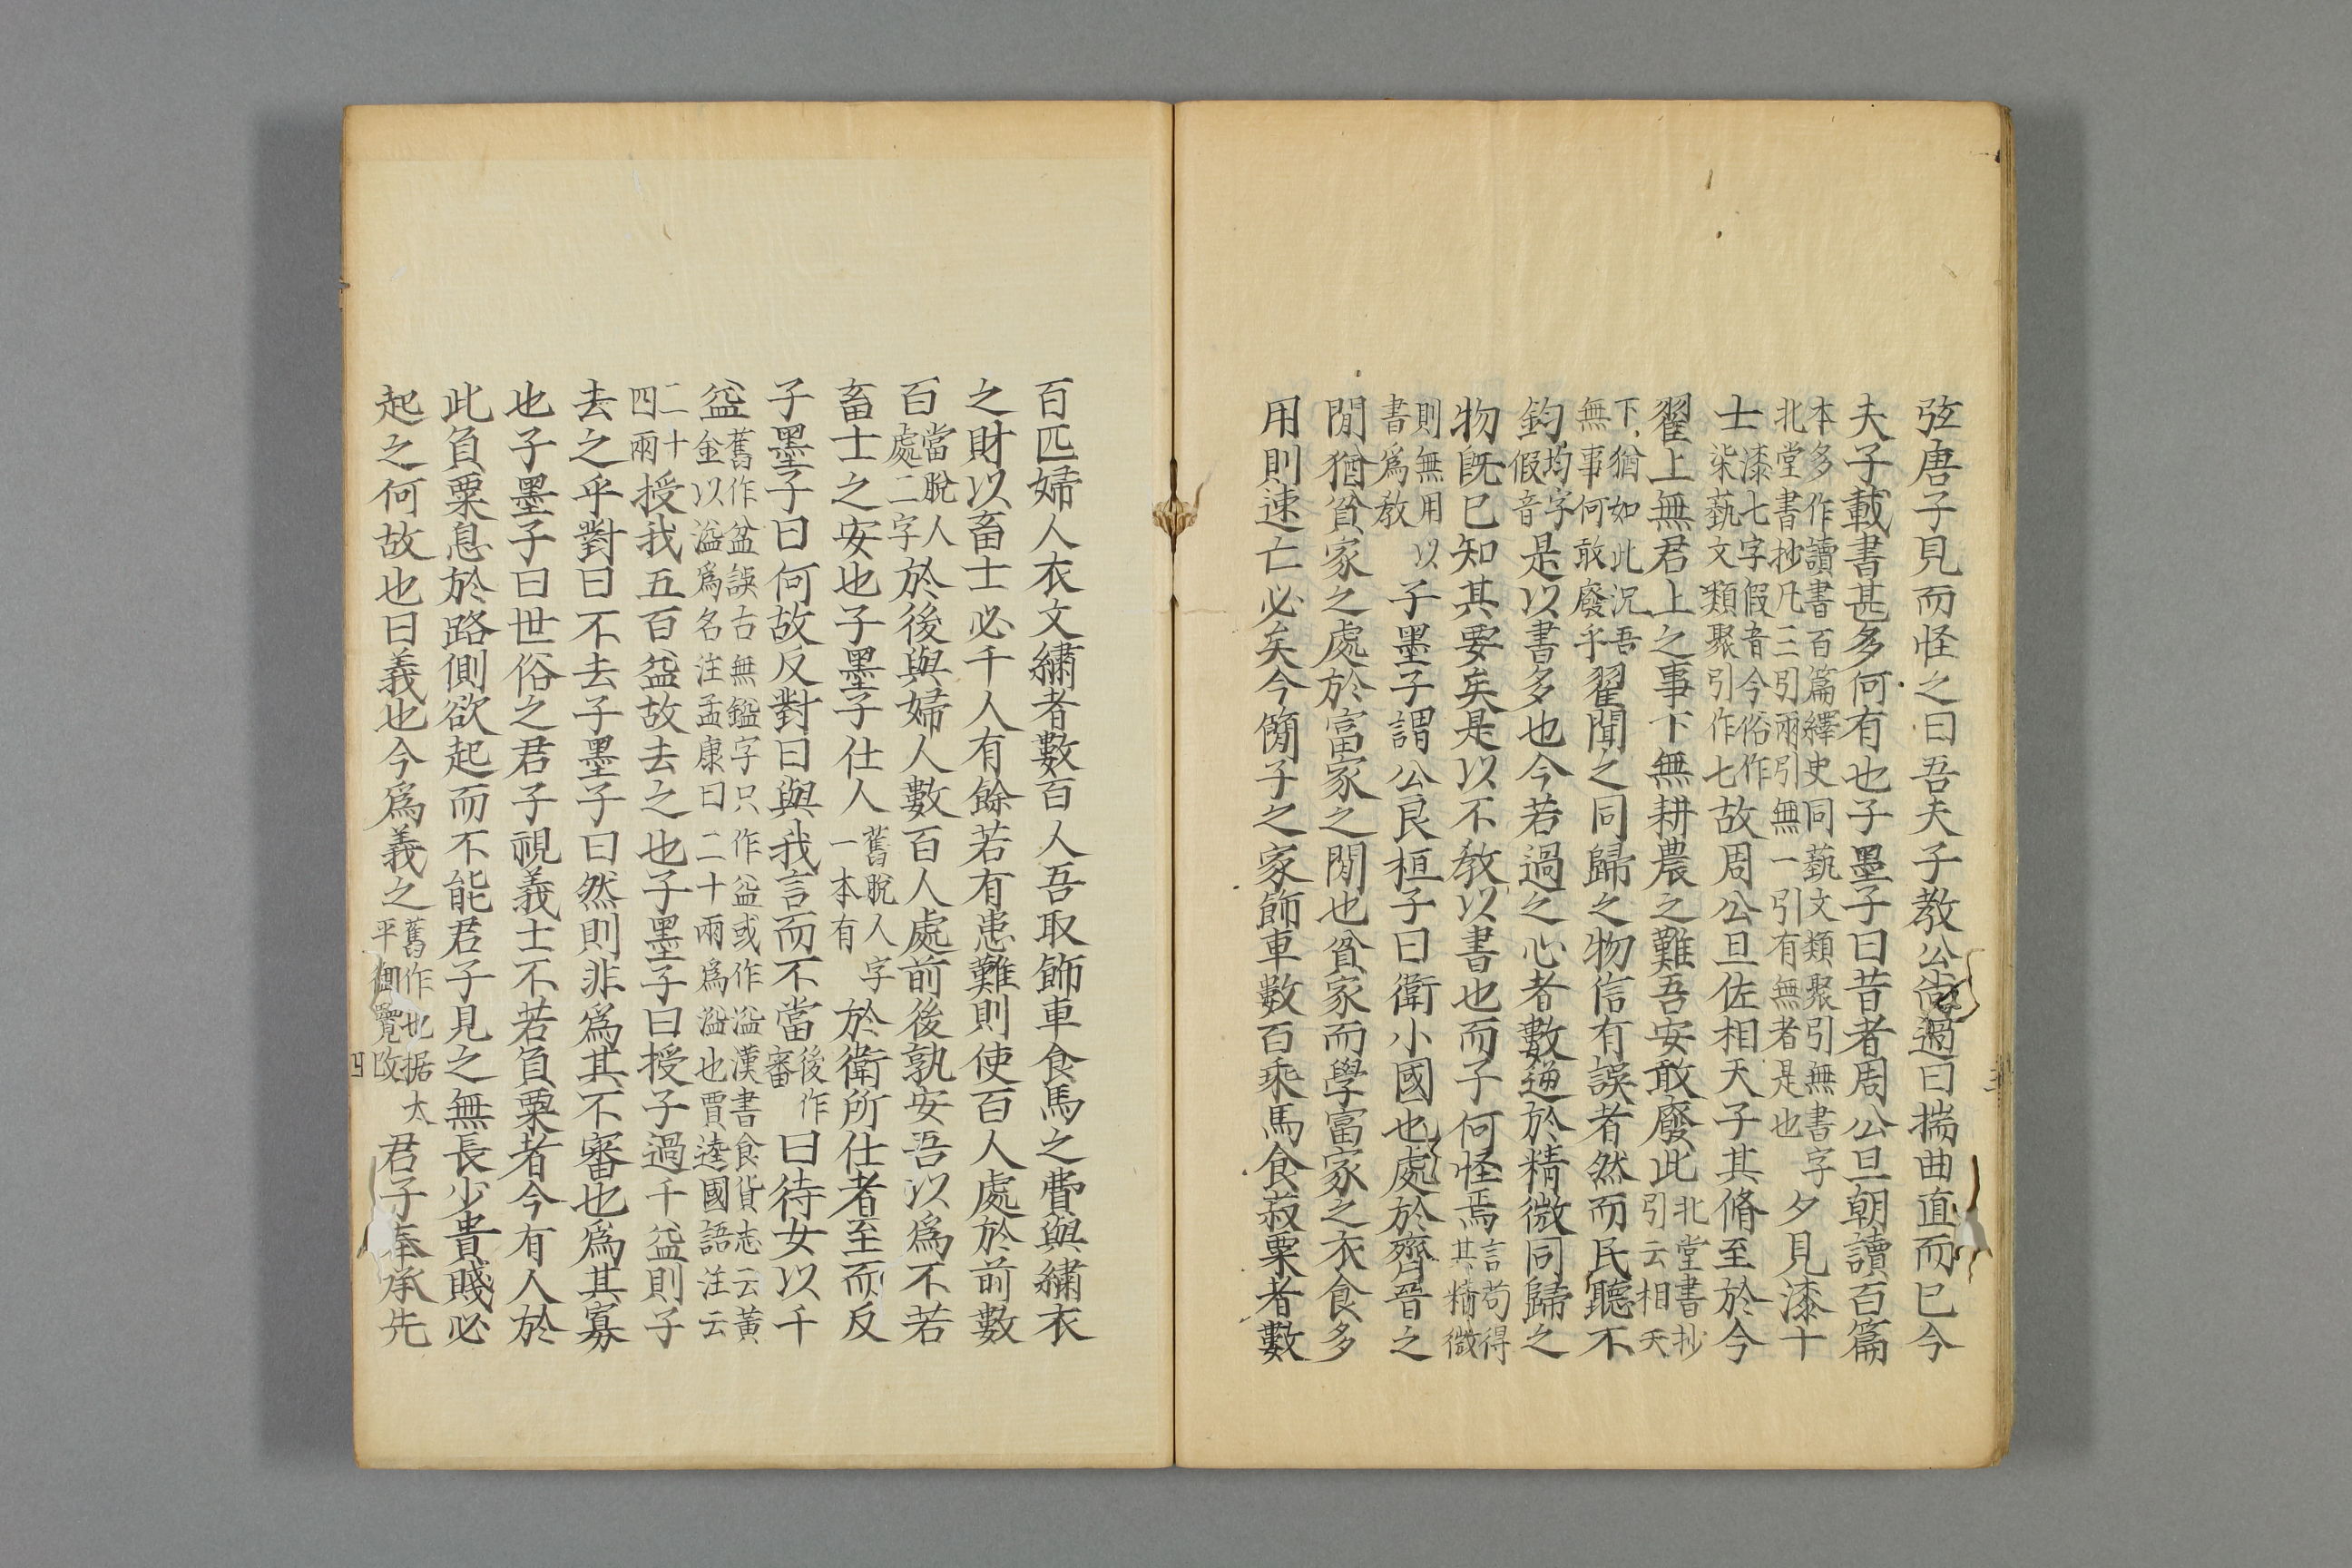 弦唐子見而怪之曰吾夫子教公尚過曰揣曲直而已今
夫子載書甚多何有也子墨子曰昔者周公旦朝讀百篇
本多作讀書百篇繹史同藝文類聚引無書字北堂書抄凡三引兩引無一引有無者是也夕見漆十
士漆七字假音今俗作柒藝文類聚引作七故周公旦佐相天子其脩至於今
翟上無君上之事下無耕農之難吾安敢廢此北堂書抄引云相天
下猶如此況吾無事何敢廢乎翟聞之同歸之物信有誤者然而民聽不
鈞均字假音是以書多也今若過之心者數逆於精微同歸之
物既已知其要矣是以不教以書也而子何怪焉言苟得其精微
則無用以書爲教子墨子謂公良桓子曰衛小國也處於齊晉之
閒猶貧家之處於富家之閒也貧家而學富家之衣食多
用則速亡必矣今簡子之家飾車數百乘馬食菽粟者數
百匹婦人衣文繡者數百人吾取飾車食馬之費與繡衣
之財以畜士必千人有餘若有患難則使百人處於前數
百當脫人處二字於後與婦人數百人處前後孰安吾以爲不若
畜士之安也子墨子仕人舊脫人字一本有於衛所仕者至而反
子墨子曰何故反對曰與我言而不當後作審曰待女以千
益舊作盆誤古無鎰字只作益或作溢漢書食貨志云黃金以溢爲名注孟康曰二十兩爲溢也賈逵國語注云
二十四兩授我五百益故去之也子墨子曰授子過千益則子
去之乎對曰不去子墨子曰然則非爲其不審也爲其寡
也子墨子曰世俗之君子視義士不若負粟者今有人於
此負粟息於路側欲起而不能君子見之無長少貴賤必
起之何故也曰義也今爲義之舊作也据太平御覽改君子奉承先
四